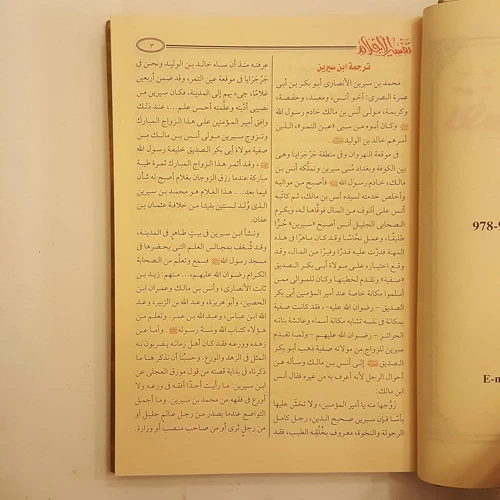 تفسير الأحلام
٣
ترجمة ابن سيرين
محمد بن سيرين الأنصارى أبو بكر بن أبى
عمرة البصرى: أخو أنس، ومعبد، وحفصة،
وكريمة، مولى أنس بن مالك خادم رسول الله
ﷺ وكان أبوه من سبى «عين التمر»، الذين
أسرهم خالد بن الوليد
فى موقعة النهروان وفى منطقة جَرْجَرايا وهى
بين الكوفة وبغداد سُبى سيرين وتملّكه أنس بن
مالك، خادم رسول الله ﷺ فأصبح من مواليه
وأخلص خدمته لسيده أنس بن مالك، ثم كاتَبه
أنس على ألوف من المال فوفّاها له، وبكرم
الصحابى الجليل أنس أصبح «سيرين» حُرًّا
طليقًا، وعمل نحّاسًا وقد كان ماهرًا فى هذه
المهنة فدرّت عليه قدرًا وفرًا من المال، وقد
وقع اختياره على مولاة أبى بكر الصديق
«صفية» وتقدم لخطبتها وكان للموالى ممن
أسلموا مكانة خاصة عند أمير المؤمنين أبى بكر
الصديق - رضوان الله عليه-، فقد كانت صفية
بمكانة فى نفسه تشابه مكانة أسماء وعائشة بناته
الحرائر - رضوان الله عليهم - ولمّا تقدم
سيرين للزواج من مولاته صفية ذهب أبو بكر
الصديق إلى أنس بن مالك وسأله عن
أحوال الرجل لأنه أعرف به من غيره فقال أنس
ابن مالك:
زَوِّجها منه يا أمير المؤمنين، ولا تخشَ عليها
بأسًا فإن سيرين صحيح الدين، رجل كامل
الرجولة والنخوة، معروف بخُلُقِه الطيب، فقد
عرفته منذ أن سباه خالد بن الوليد ونحن فى
جَرْجَرايا فى موقعة عين التمر، وقد ضمن أربعين
غلامًا، جىء بهم إلى المدينة، فكان سيرين من
نصيبى أدّبته وعلّمته أحسن علم...، عند ذلك
وافق أمير المؤمنين على هذا الزواج المبارك
وتزوج سيرين مولى أنس بن مالك من
صفية مولاة أبى بكر الصديق خليفة رسول الله
ﷺ، وقد أثمر هذا الزواج المبارك ثمرة طيبة
مباركة عندما رزق الزوجان بغلام أصبح له شأن
فيما بعد...، هذا الغلام هو محمد بن سيرين
الذى وُلد لسنتين بقيتا من خلافة عثمان بن
عفان.
ونشأ ابن سيرين فى بيتٍ طاهر فى المدينة،
وقد شُغف بمجالس العلم التى يحضرها فى
مسجد رسول الله ﷺ فسمع وتعلّم من الصحابة
الكرام رضوان الله عليهم،... منهم: زيد بن
ثابت الأنصارى، وأنس بن مالك وعمران ابن
الحصين، وأبو هريرة، وعبد الله بن الزبير، وعبد
الله ابن عباس، وعبد الله بن عمر. وتعلم من
هؤلاء كتاب الله وسنة رسوله ﷺ. وأما عن
زهده وورعه فقد كان أهل زمانه يضربون به
المثل فى الزهد والورع، وحسبُنا أن نذكر هنا ما
ذكرناه فى بداية قصته من قول مورق العجلى عن
ابن سيرين: ما رأيت أحدًا أفقه فى ورعه ولا
أورع فى فقهه من محمد بن سيرين. وما أجمل
التواضع عندما يصدر من رجل عالم جليل أو
من رجل ثرى أو من صاحب منصب أو وزارة.
978-9
E-m